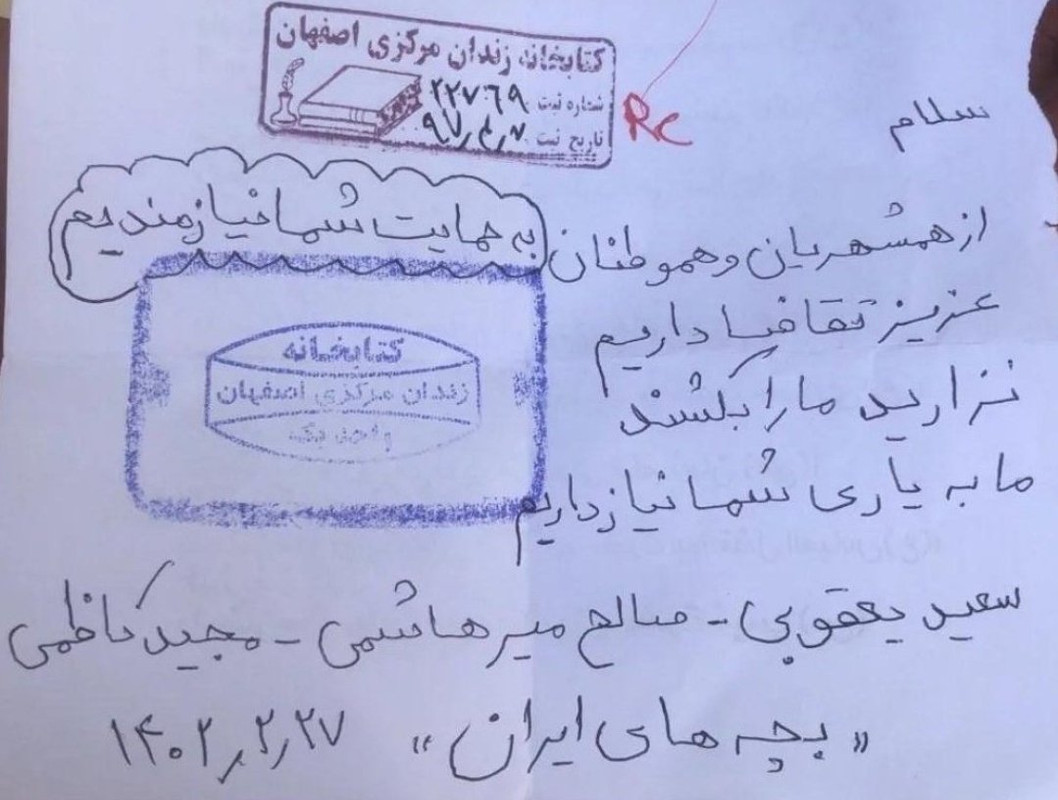 کتابخانه زندان مرکزی اصفهان
شماره ثبت ۲۲۷۶۹
تاریخ ثبت ۹۷٫۴٫۷
Rc
سلام
از همشهریان و هموطنان به حمایت شما نیازمندیم
عزیز تقاضا داریم
نزارید ما را بکشند
ما به یاری شما نیاز داریم
کتابخانه
زندان مرکزی اصفهان
واحد یک
سعید یعقوبی - صالح میرهاشمی - مجید کاظمی
« بچه های ایران » ۱۴۰۲٫۲٫۲۷